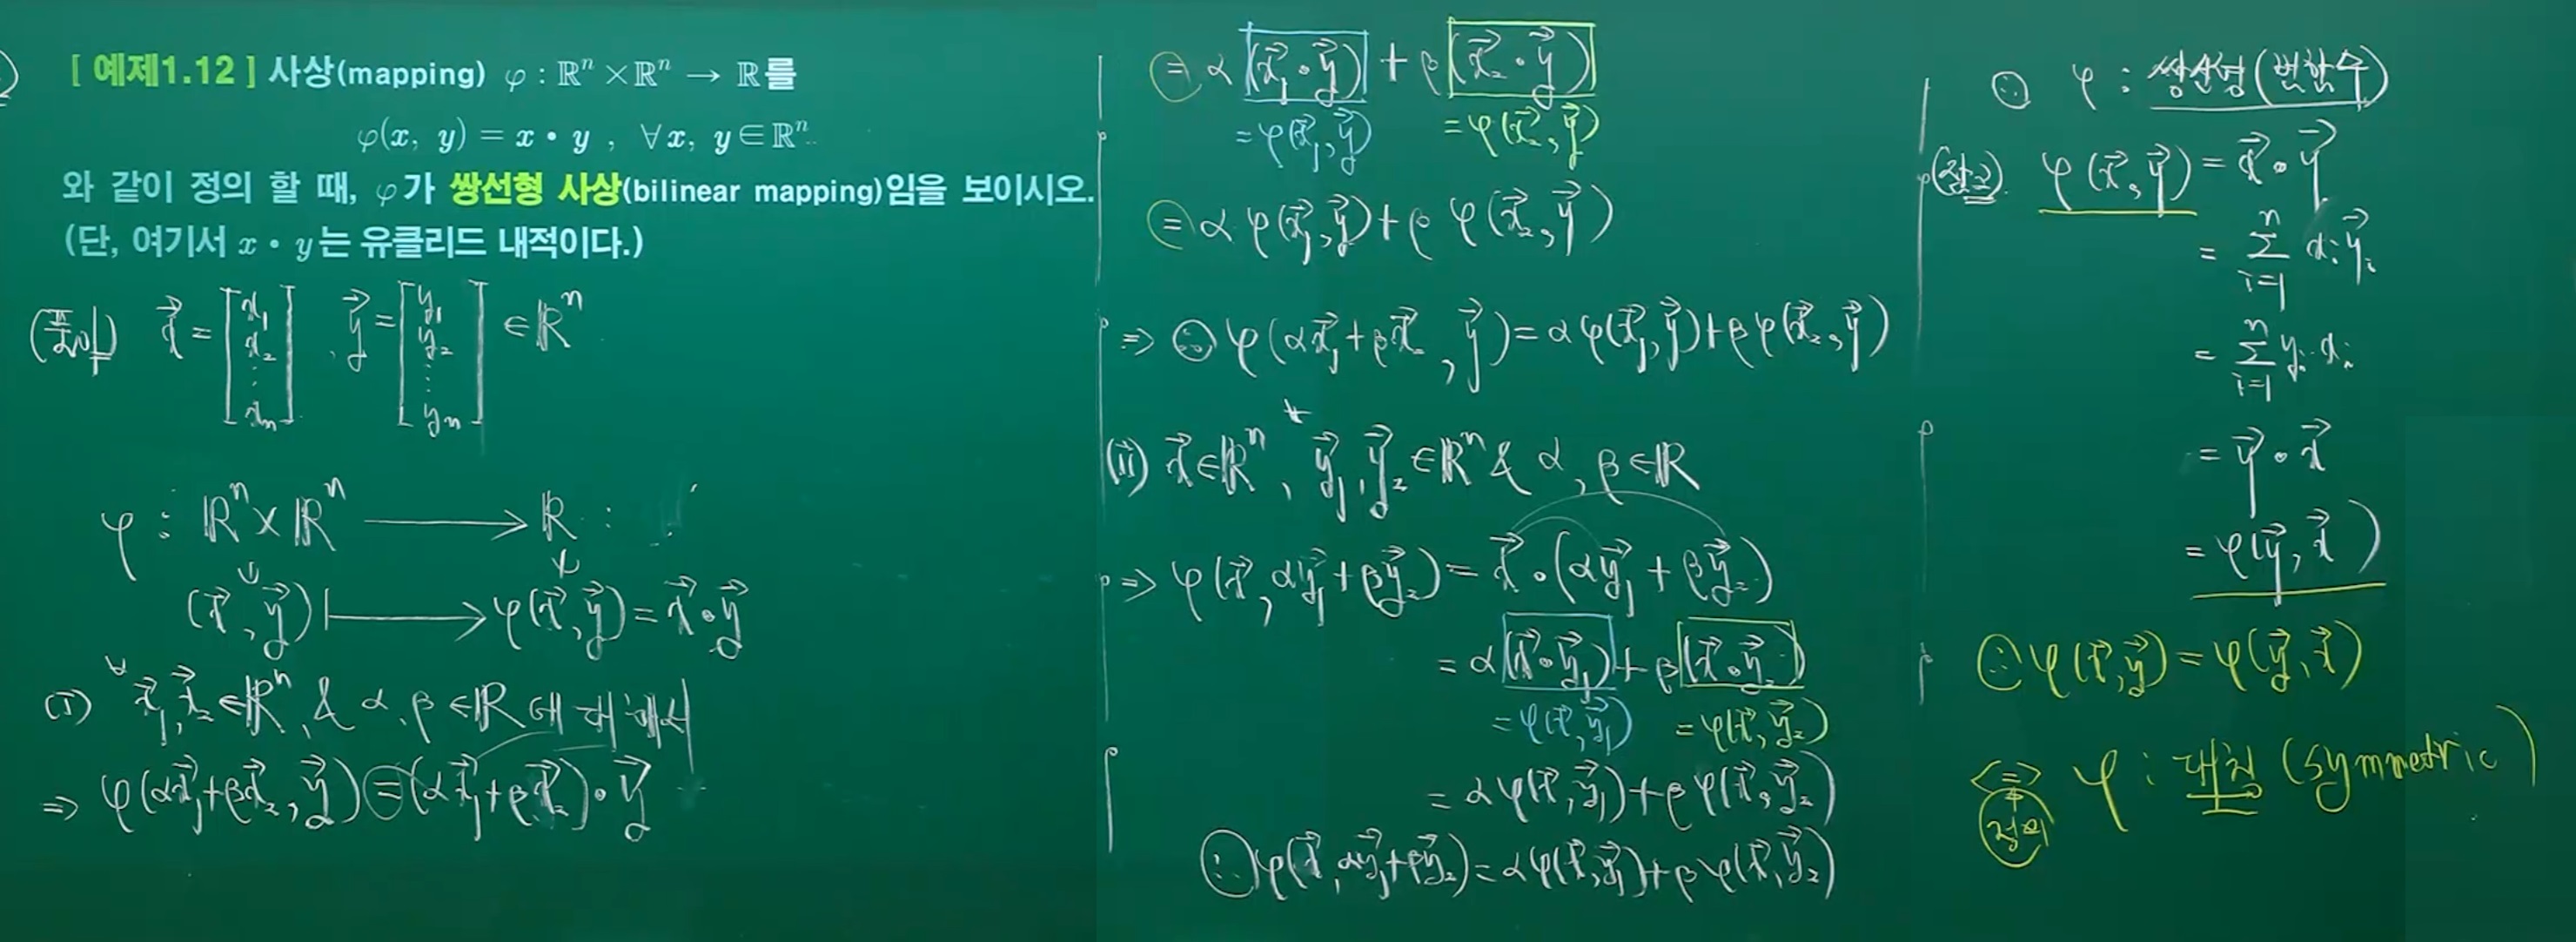 [ 예제1.12 ] 사상(mapping) φ : ℝⁿ × ℝⁿ → ℝ를
φ(x, y) = x • y , ∀x, y∈ℝⁿ
와 같이 정의 할 때, φ가 쌍선형 사상(bilinear mapping)임을 보이시오.
(단, 여기서 x • y는 유클리드 내적이다.)
(풀이) x⃗ = [x₁ x₂ ⋮ xₙ] , y⃗ = [y₁ y₂ ⋮ yₙ] ∈ ℝⁿ
φ : ℝⁿ × ℝⁿ ⟶ ℝ :
(x⃗, y⃗) ⟼ φ(x⃗, y⃗) = x⃗ • y⃗
(i) ∀x⃗₁, x⃗₂ ∈ ℝⁿ, & α, β ∈ ℝ에 대해서
⇒ φ(αx⃗₁+βx⃗₂, y⃗) = (αx⃗₁+βx⃗₂) • y⃗
= α(x⃗₁ • y⃗) + β(x⃗₂ • y⃗)
= φ(x⃗₁, y⃗) = φ(x⃗₂, y⃗)
= αφ(x⃗₁, y⃗) + βφ(x⃗₂, y⃗)
⇒ ∴ φ(αx⃗₁+βx⃗₂, y⃗) = αφ(x⃗₁, y⃗) + βφ(x⃗₂, y⃗)
(ii) x⃗ ∈ ℝⁿ, ∀y⃗₁, y⃗₂ ∈ ℝⁿ & α, β ∈ ℝ
⇒ φ(x⃗, αy⃗₁+βy⃗₂) = x⃗ • (αy⃗₁ + βy⃗₂)
= α(x⃗ • y⃗₁) + β(x⃗ • y⃗₂)
= φ(x⃗, y⃗₁) = φ(x⃗, y⃗₂)
= αφ(x⃗, y⃗₁) + βφ(x⃗, y⃗₂)
∴ φ(x⃗, αy⃗₁+βy⃗₂) = αφ(x⃗, y⃗₁) + βφ(x⃗, y⃗₂)
∴ φ : 쌍선형(범함수)
(참고) φ(x⃗, y⃗) = x⃗ • y⃗
= Σⁿᵢ₌₁ xᵢ y⃗ᵢ
= Σⁿᵢ₌₁ yᵢ xᵢ
= y⃗ • x⃗
= φ(y⃗, x⃗)
∴ φ(x⃗, y⃗) = φ(y⃗, x⃗)
⇔ φ : 대칭 (symmetric)
정의